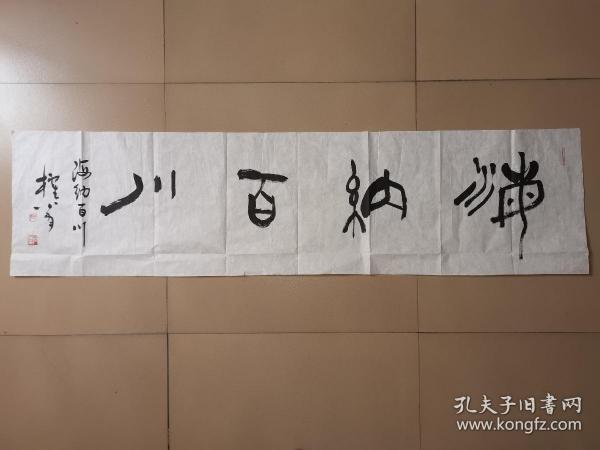 海纳百川
海纳百川
孔夫子旧书网
www.kongfz.com